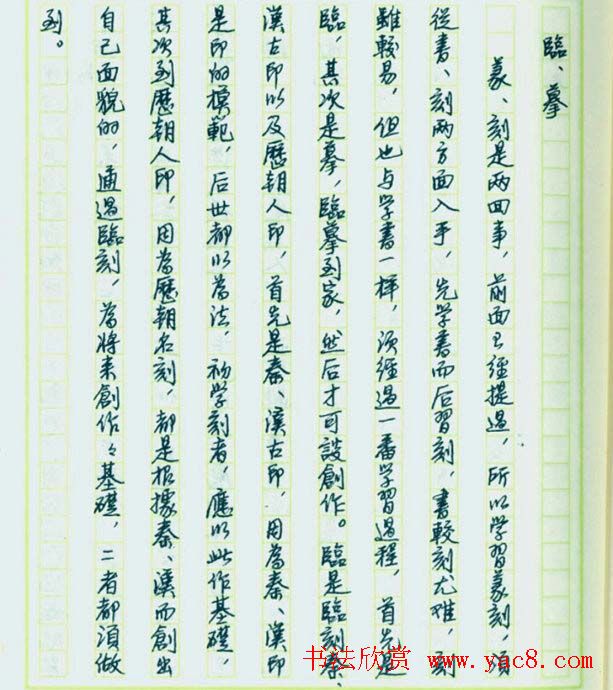 臨、摹
篆、刻是两回事，前面已經提過，所以学習篆刻，須
從書、刻两方面入手，先学書而后習刻，書較刻尤难，刻
雖較易，但也与学書一樣，須經過一番学習過程，首先是
臨，其次是摹，臨摹到家，然后才可談創作。臨是臨刻秦、
漢古印以及歷朝人印，首先是秦、漢古印，因爲秦、漢印
是印的模範，后世都以爲法，初学刻者，應以此作基礎，
其次到歷朝人印，因爲歷朝名刻，都是根據秦、漢而創出
自己面貌的，通過臨刻，爲將来創作々基礎，二者都須做
到。
书法欣赏 www.yac8.com